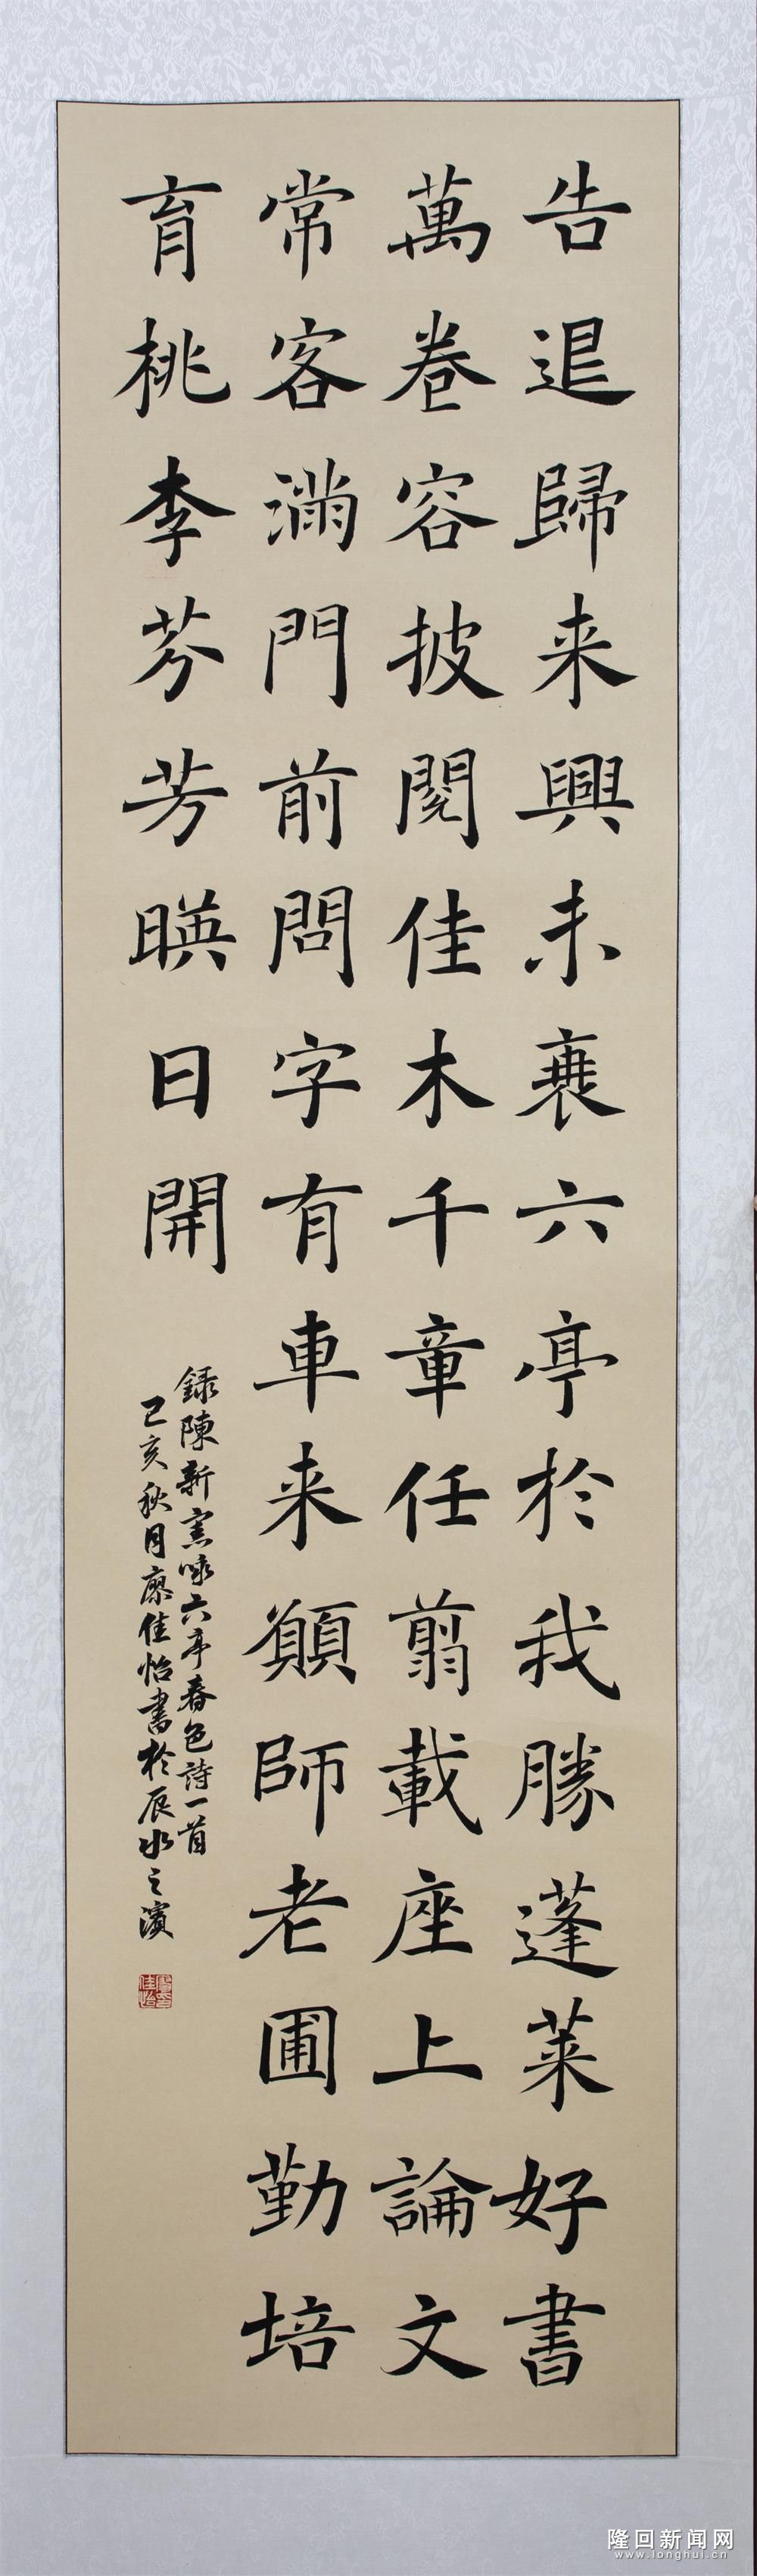 告退歸来興未衰六亭於我勝蓬莱好書
萬卷容披閱佳木千章任翦載座上論文
常客滿門前問字有車来顛師老圃勤培
育桃李芬芳暎日開
録陳新憲咏六亭春色詩一首
己亥秋月廖佳怡書於辰水之濱
隆回新闻网
www.longhui.cn